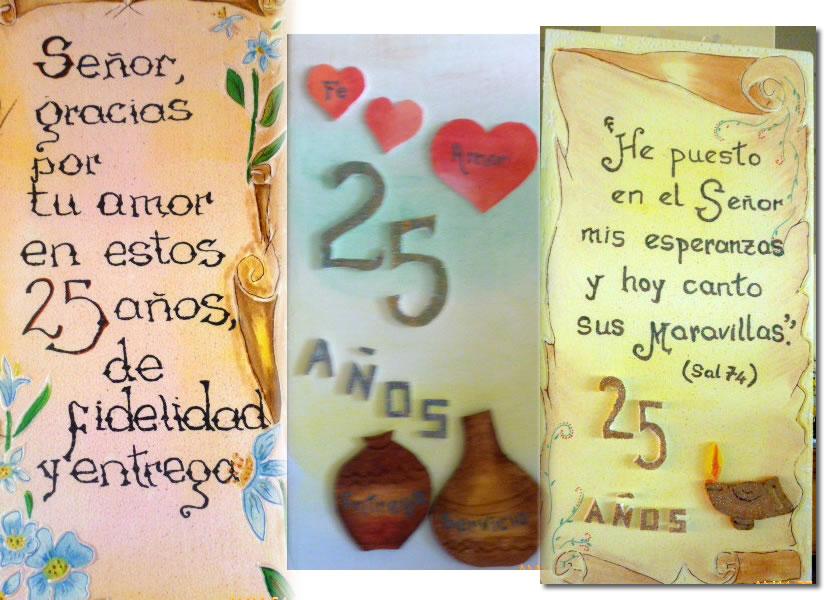 Señor,
gracias
por
tu amor
en estos
25 años,
de
fidelidad
y entrega
Fe
Amor
25
AÑOS
Entrega
Servicio
"He puesto
en el Señor
mis esperanzas
y hoy canto
sus Maravillas".
(Sal 74)
25
AÑOS